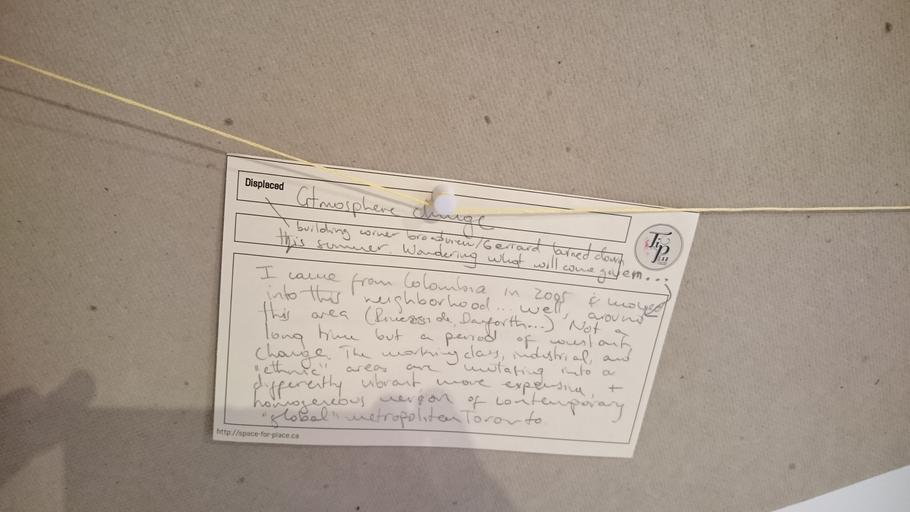 Displaced
Atmosphere change
building corner broadview/Gerrard burned down
this summer Wondering what will come
I came from Colombia in 2005 & moved
into this neighborhood... well, around
this area (Riverside, Danforth...) Not a
long time but a period of constant
change. The working class, industrial, and
"ethnic" areas are mutating into a
differently vibrant more expensive +
homogeneous version of contemporary
"global" metropolitan Toronto.
http://space-for-place.ca